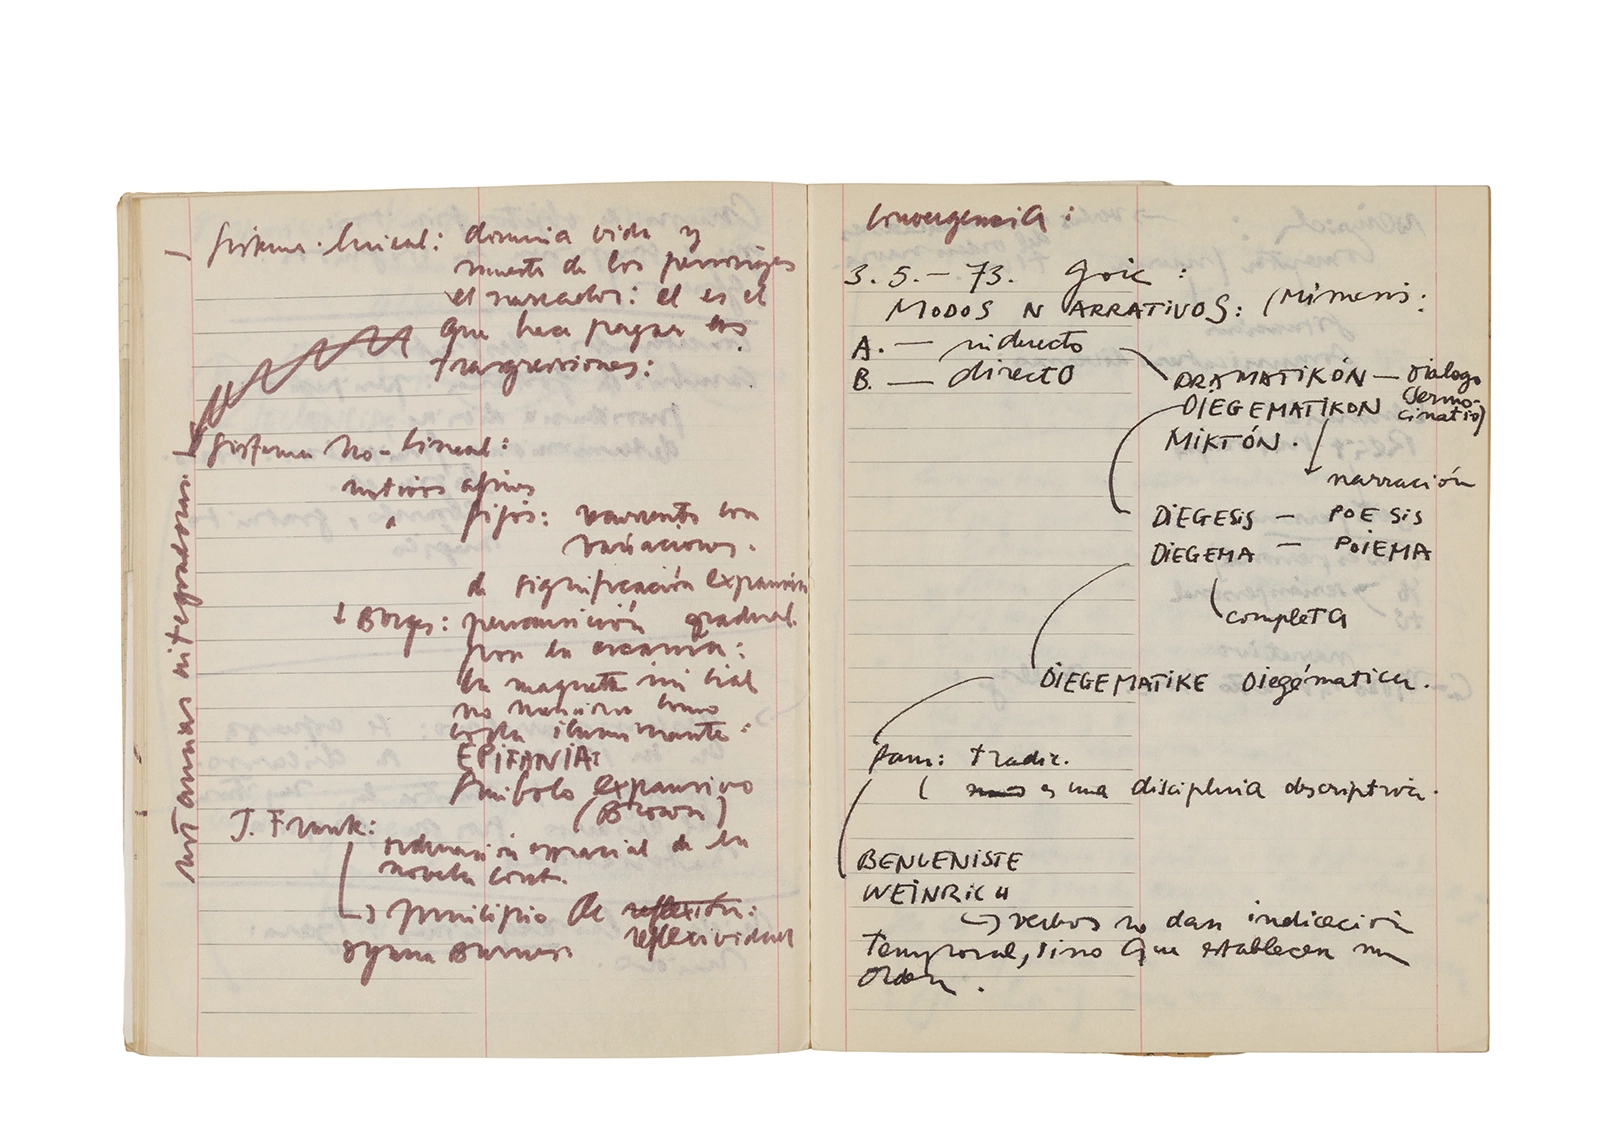 Sistema lineal: domina vida y
muerte de los personajes
el narrador: él es el
que hace pagar las
trasgresiones:
Sistema no-lineal:
motivos afines
" fijos: recurrente con
variaciones.
de significación expansiva
Borges: gradual
por la
la
no como
iluminante:
EPIFANIA:
Símbolo expansivo
(Brown)
J. Frank:
ordenación espacial de la
novela cont.
→ principio de reflexión:
reflexividad
Djuna Barnes:
integradoras
Convergencia:
3. 5. – 73. Goic:
MODOS NARRATIVOS: (Mímesis:
A. — indirecto
B. — directo
DRAMATIKÓN — Diálogo
(Sermo-
cinatio)
DIEGEMATIKON
MIKTÓN.
narración
DIEGESIS — POESIS
DIEGEMA — POIEMA
completa
DIEGEMATIKE Diegématica.
tradic.
es una disciplina descriptiva.
BENVENISTE
WEINRICH
→ verbos no dan indicación
temporal, sino que establecen un
orden.